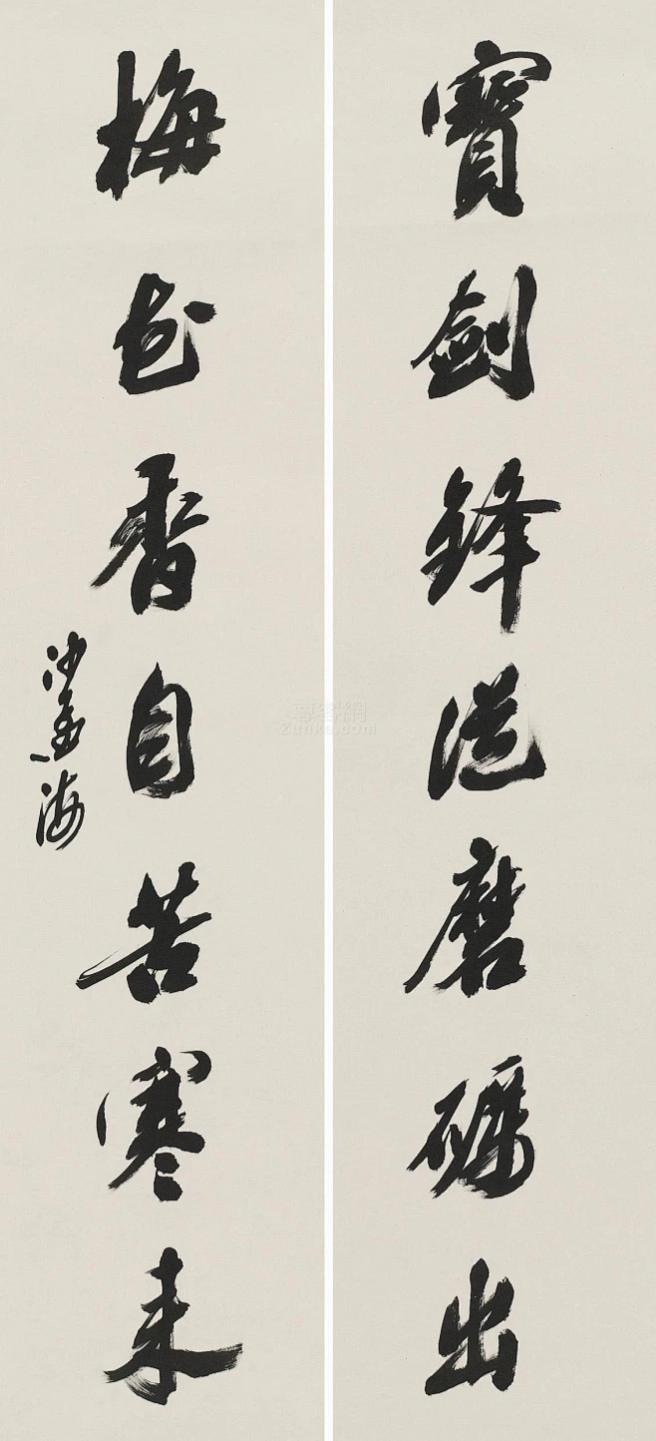 寶劍鋒從磨礪出
梅花香自苦寒來
沙孟海